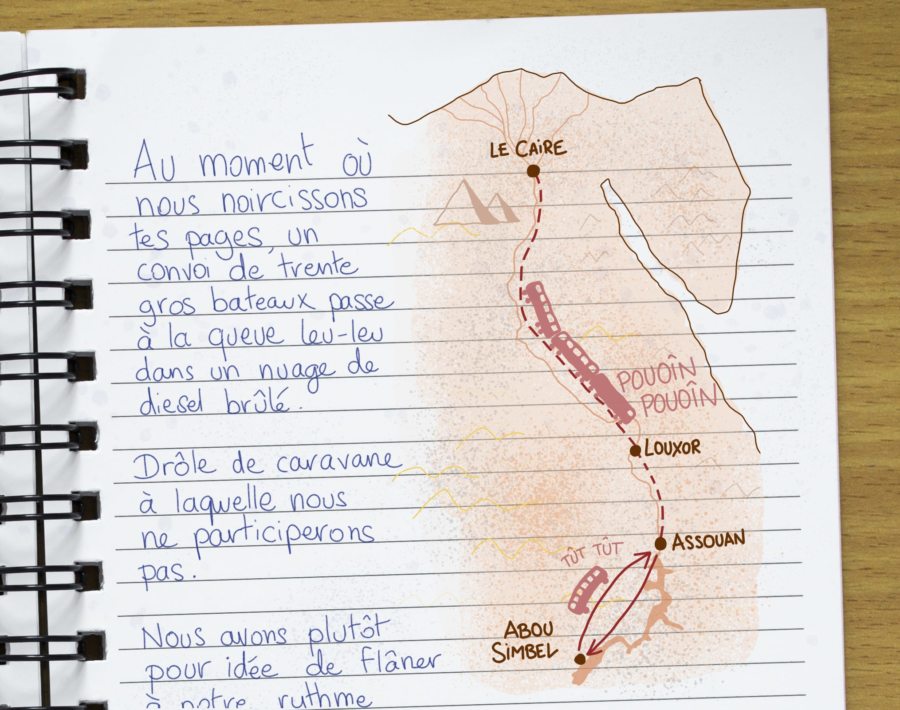 Au moment où
nous noircissons
tes pages, un
convoi de trente
gros bateaux passe
à la queue leu-leu
dans un nuage de
diesel brûlé.
Drôle de caravane
à laquelle nous
ne participerons
pas.
Nous avons plutôt
pour idée de flâner
à notre rythme
LE CAIRE
POUOÎN
POUOÎN
LOUXOR
ASSOUAN
TÛT TÛT
ABOU
SIMBEL